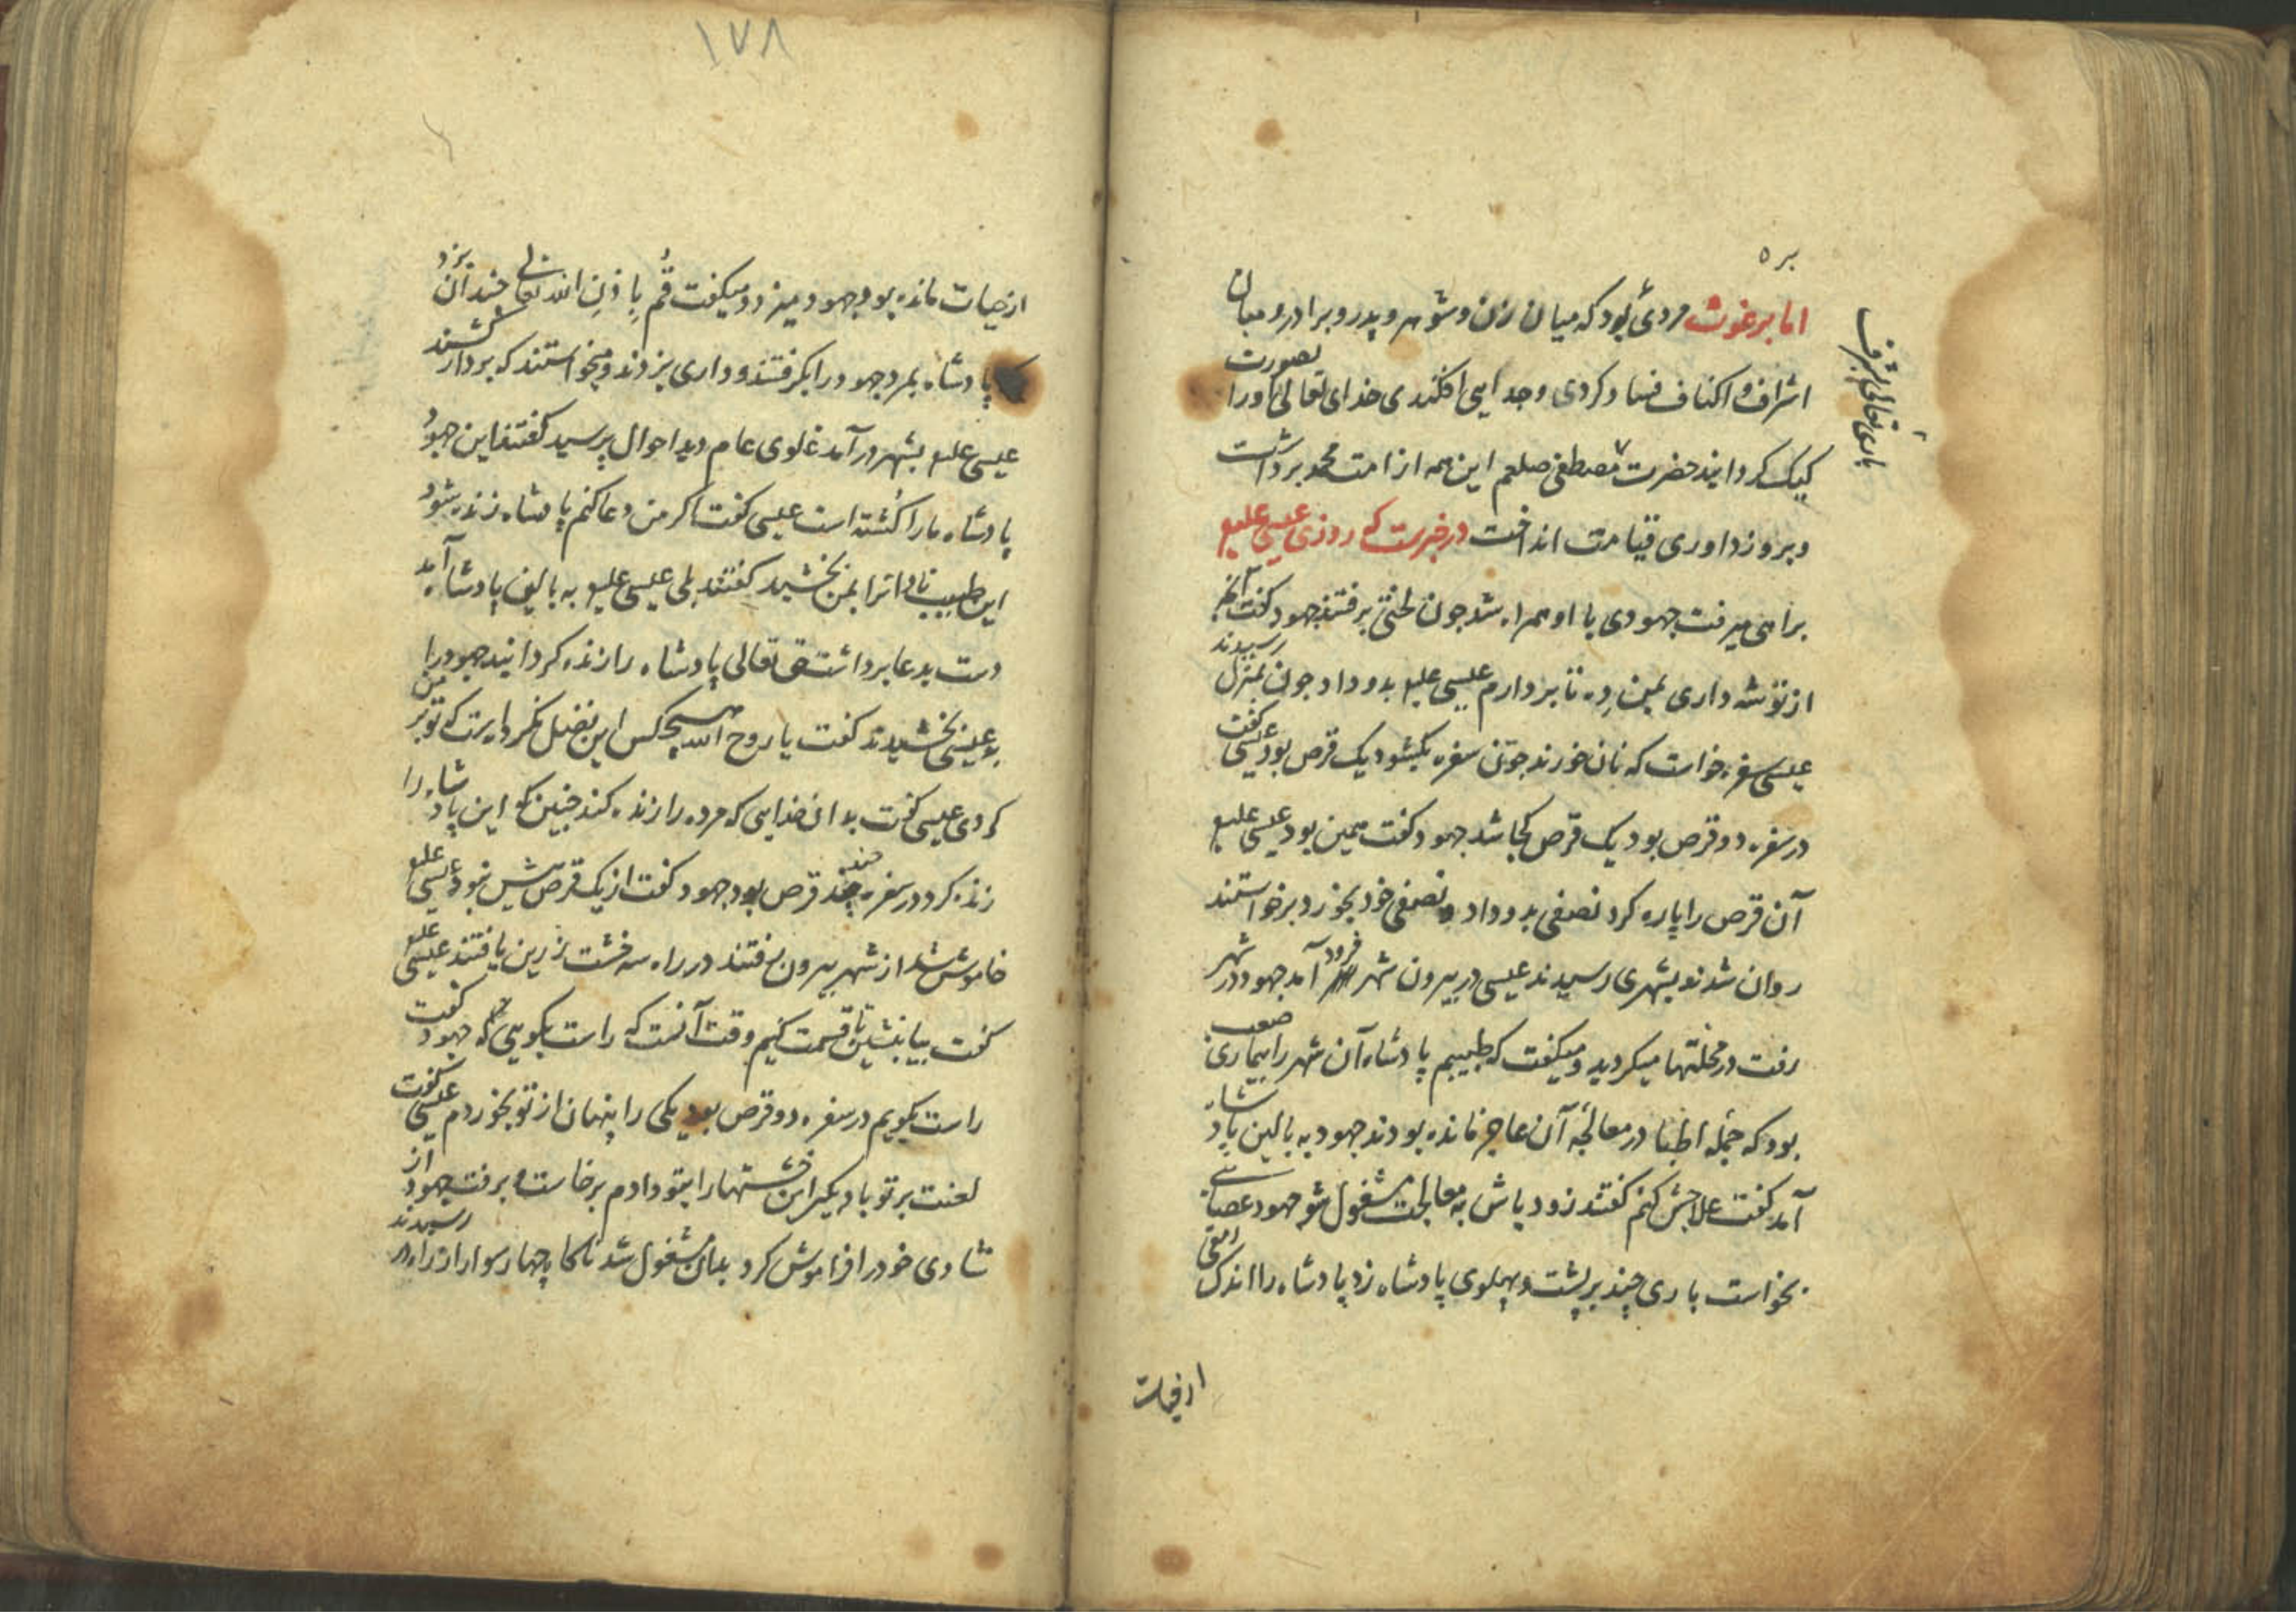 بر ه
اما برغوث مردی بود که میان زن و شوهر و پدر و برادر و میان
اشراف و اکناف فساد کردی و جدایی افکندی خدای تعالی اورا بصورت
کیک کردانید حضرت مصطفی صلعم این همه از امت محمد برداشت
و بروز داوری قیامت انداخت در خبرست که روزی عیسی علیه
براهی میرفت جهودی با او همراه شد چون لختی برفتند جهود کفت آنچه
از توشه داری بمن ده تا بردارم عیسی علیه بدو داد چون بمنزل رسیدند
عیسی سفره خواست که نان خورند چون سفره بکشود یک قرص بود عیسی کفت
در سفره دو قرص بود یک قرص کجا شد جهود کفت همین بود عیسی علیه
آن قرص را پاره کرد نصفی بدو داد و نصفی خود بخورد برخواستند
روان شدند بشهری رسیدند عیسی در بیرون شهر فرود آمد جهود در شهر
رفت در محلتها میکردید و میکفت که طبیبم پادشاه آن شهر را بیماری صعب
بود که جمله اطبا در معالجه آن عاجز مانده بودند جهود به بالین پادشاه
آمد کفت علاجش کنم کفتند زود باش به معالجت مشغول شو جهود عصایی
بخواست باری چند بر پشت و پهلوی پادشاه زد پادشاه را اندک رمقی
از حیات
باری تعالی بشرف
۱۷۸
از حیات مانده بود جهود میزد و میکفت قُم بِاِذنِ الله تعالی چندان بزد
که پادشاه بمرد جهود را بکرفتند و داری بزدند و میخواستند که بر دار کشند
عیسی علیه بشهر درآمد غلوی عام دید احوال پرسید کفتند این جهود
پادشاه ما را کُشته است عیسی کفت اکر من دعا کنم پادشاه زنده شود
این طبیب نادانرا بمن بخشید کفتند بلی عیسی علیه به بالین پادشاه آمد
دست بدعا برداشت حق تعالی پادشاه را زنده کردانید جهود را
به عیسی بخشیدند کفت یا روح الله هیچکس این فضل نکرده است که تو بر من
کردی عیسی کفت بدان خدایی که مرده را زنده کند چنین که این پادشاه را
زنده کرد در سفره چند قرص بود جهود کفت از یک قرص بیش نبود عیسی علیه
خاموش شد از شهر بیرون رفتند در راه سه خشت زرین یافتند عیسی علیه
کفت بیا بنشین تا قسمت کنیم وقت آنست که راست بکویی که جهود کفت
راست بکویم در سفره دو قرص بود یکی را پنهان از تو بخوردم عیسی کفت
لعنت بر تو باد بکیر این خشتها را بتو دادم برخاست و برفت جهود از
شادی خود را فراموش کرد بدان مشغول شد ناکاه چهار سوار از راه رسیدند